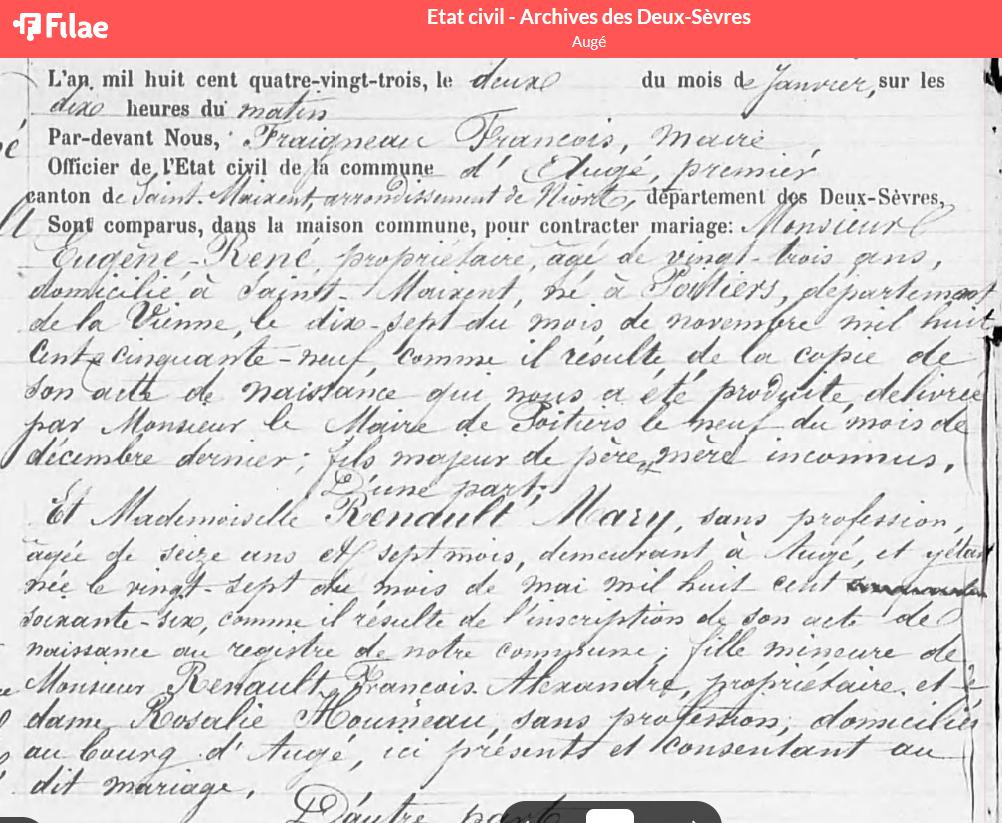 Filae
Etat civil - Archives des Deux-Sèvres
Augé
L'an mil huit cent quatre-vingt-trois, le deux du mois de Janvier, sur les
dix heures du matin
Par-devant Nous, Fraigneau François, Maire,
Officier de l'Etat civil de la commune d'Augé, premier
canton de Saint-Maixent, arrondissement de Niort, département des Deux-Sèvres,
Sont comparus, dans la maison commune, pour contracter mariage: Monsieur
Eugène-René, propriétaire, âgé de vingt-trois ans,
domicilié à Saint-Maixent, né à Poitiers, département
de la Vienne, le dix-sept du mois de novembre mil huit
cent cinquante-neuf, comme il résulte de la copie de
son acte de naissance qui nous a été produite, délivrée
par Monsieur le Maire de Poitiers le neuf du mois de
décembre dernier; fils majeur de père et mère inconnus.
D'une part;
Et Mademoiselle Renault Mary, sans profession,
âgée de seize ans et sept mois, demeurant à Augé, et y étant
née le vingt-sept du mois de mai mil huit cent
soixante-six, comme il résulte de l'inscription de son acte de
naissance au registre de notre commune; fille mineure de
Monsieur Renault François Alexandre, propriétaire, et de
dame Rosalie Moumeau, sans profession, domiciliés
au bourg d'Augé, ici présents et consentant au
dit mariage.
D'autre part